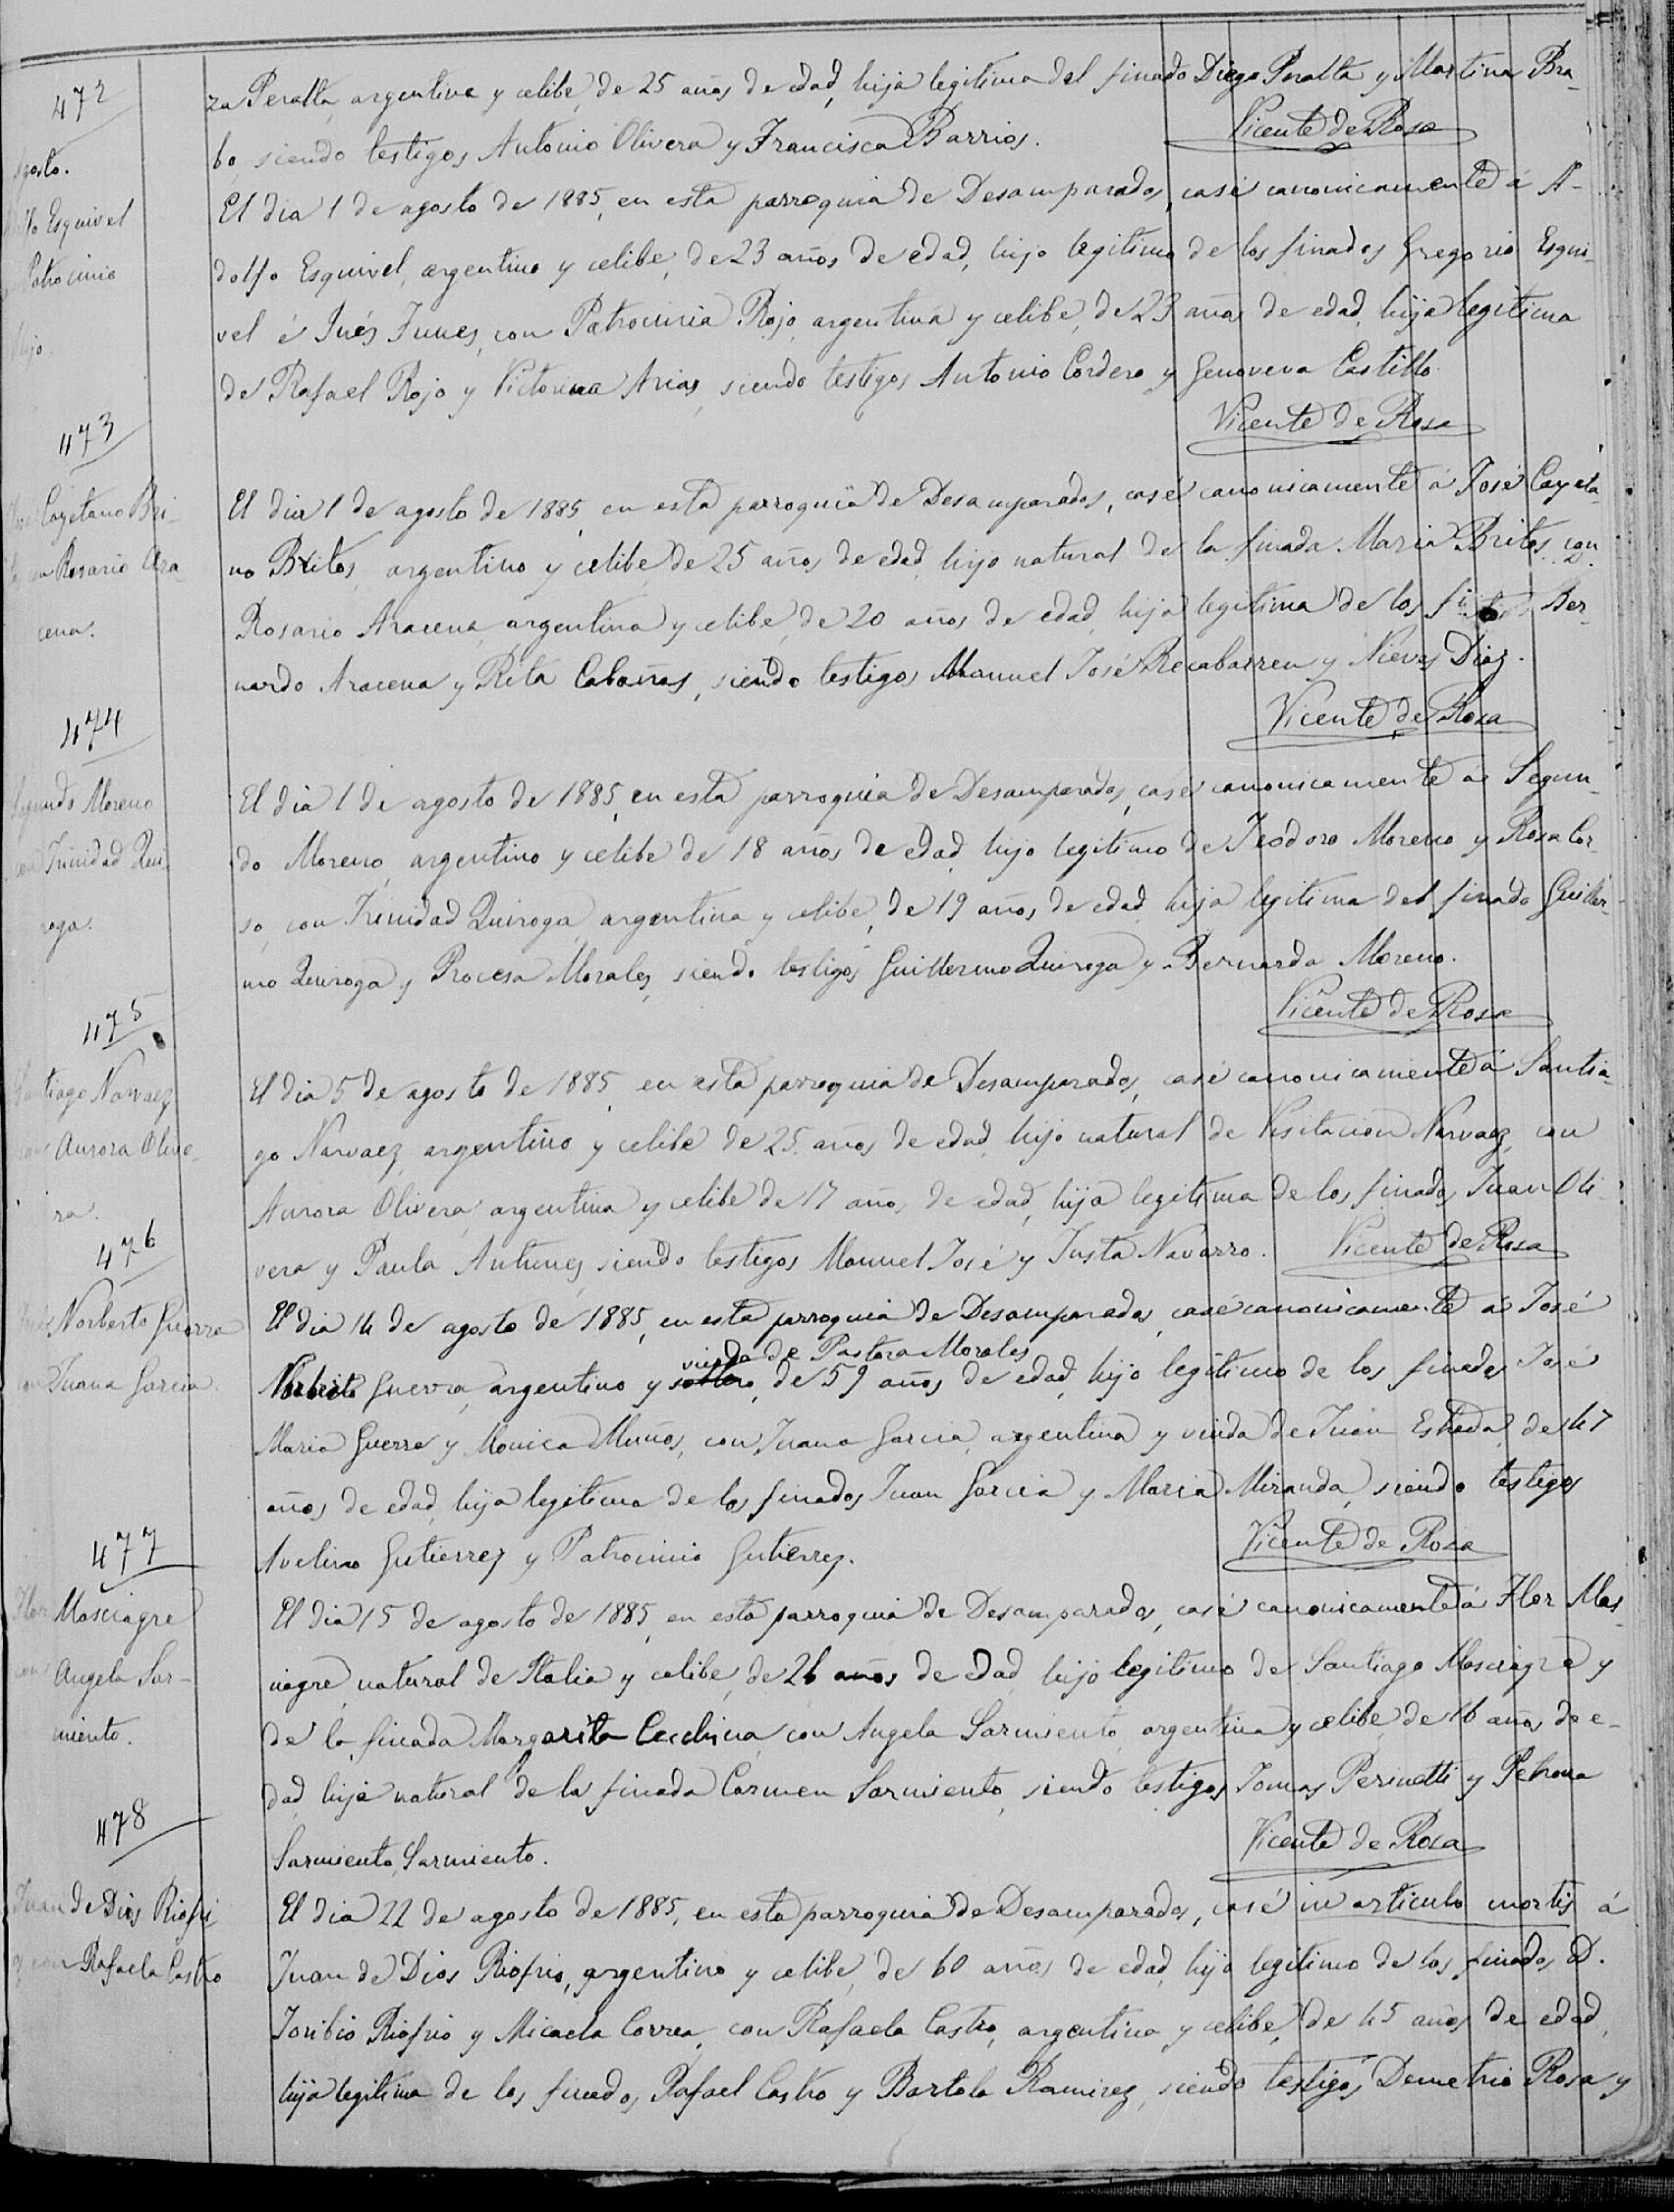 za Peralta, argentina y celibe, de 25 años de edad, hija legitima del finado Diego Peralta y Martina Bra-
bo, siendo testigos Antonio Olivera y Francisca Barrios. Vicente de Rosa
472
agosto.
Esquivel
Patrocinio
El dia 1 de agosto de 1885, en esta parroquia de Desamparados, casé canonicamente á A-
dolfo Esquivel, argentino y celibe, de 23 años de edad, hijo legitimo de los finados Gregorio Esqui-
vel é Inés Funes, con Patrocinia Rojo, argentina y celibe, de 23 años de edad, hija legitima
de Rafael Rojo y Victorina Arias, siendo testigos Antonio Cordero y Genoveva Castillo.
Vicente de Rosa
473
Cayetano Bri-
Rosario Ara
cena.
El dia 1 de agosto de 1885, en esta parroquia de Desamparados, casé canonicamente á José Cayeta-
no Britos, argentino y celibe de 25 años de edad, hijo natural de la finada Maria Britos, con
Rosario Aracena, argentina y celibe, de 20 años de edad, hija legitima de los Ber-
nardo Aracena y Rita Cabañas, siendo testigos Manuel José Recabarren y Nieves Diaz.
Vicente de Rosa
474
Segundo Moreno
con Trinidad Qui-
roga.
El dia 1 de agosto de 1885, en esta parroquia de Desamparados, casé canonicamente á Segun-
do Moreno, argentino y celibe de 18 años de edad, hijo legitimo de Teodoro Moreno y Rosa Cor-
so, con Trinidad Quiroga, argentina y celibe, de 19 años de edad, hija legitima del finado Guiller-
mo Quiroga y Procesa Morales, siendo testigos Guillermo Quiroga y Bernarda Moreno.
Vicente de Rosa
475
Santiago Narvaez
con Aurora Olive-
ra.
El dia 5 de agosto de 1885, en esta parroquia de Desamparados, casé canonicamente á Santia-
go Narvaez, argentino y celibe de 25 años de edad, hijo natural de Visitacion Narvaez, con
Aurora Olivera, argentina y celibe de 17 años de edad, hija legitima de los finados Juan Oli-
vera y Paula Antunes, siendo testigos Manuel José y Justa Navarro. Vicente de Rosa
476
Norberto Guerra
con Juana Garcia.
El dia 14 de agosto de 1885, en esta parroquia de Desamparados, casé canonicamente á José
viudo de Pastora Morales
Norberto Guerra, argentino y soltero, de 59 años de edad, hijo legitimo de los finados José
Maria Guerra y Monica Muños, con Juana Garcia, argentina y viuda de Juan Estrada, de 47
años de edad, hija legitima de los finados Juan Garcia y Maria Miranda, siendo testigos
Avelino Gutierrez y Patrocinio Gutierrez. Vicente de Rosa
477
Flor Masciagre
con Angela Sar-
miento.
El dia 15 de agosto de 1885, en esta parroquia de Desamparados, casé canonicamente á Flor Mas
natural de Italia y celibe, de 26 años de edad, hijo legitimo de Santiago Masciagre y
de la finada Margarita Cecchina, con Angela Sarmiento, argentina y celibe, de 16 años de e-
dad, hija natural de la finada Carmen Sarmiento, siendo testigos Tomas Perinetti y Petrona
Sarmiento, Sarmiento. Vicente de Rosa
478
Juan de Dios Riofri
con Rafaela Castro
El dia 22 de agosto de 1885, en esta parroquia de Desamparados, casé in articulo mortis á
Juan de Dios Riofrio, argentino y celibe, de 60 años de edad, hijo legitimo de los finados D.
Toribio Riofrio y Micaela Correa, con Rafaela Castro, argentina y celibe, de 45 años de edad,
hija legitima de los finados Rafael Castro y Bartola Ramirez, siendo testigos Demetrio Rosa y